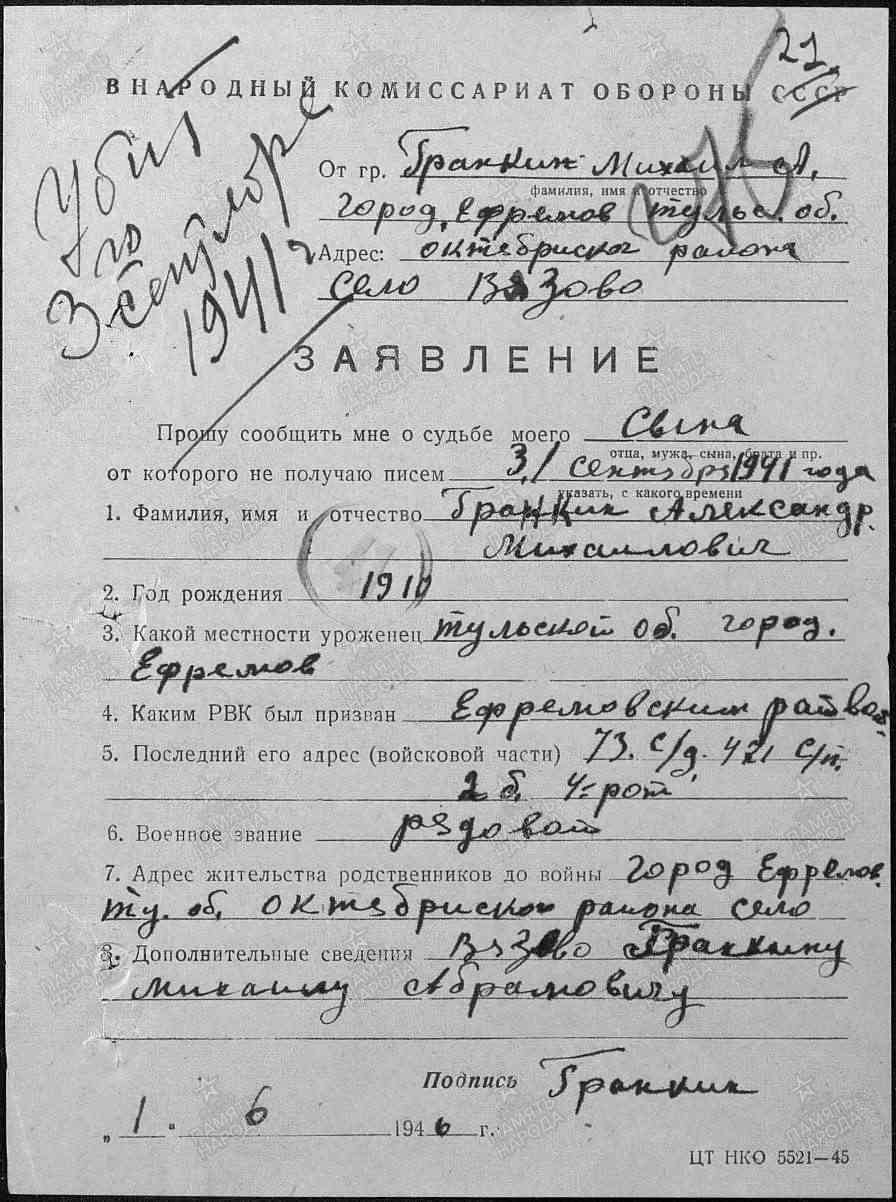 22.
В НАРОДНЫЙ КОМИССАРИАТ ОБОРОНЫ СССР
Убит
3го сентября
1941 г
От гр. Гранкин Михаил А.
фамилия, имя и отчество
город. Ефремов тульс. об.
Адрес: октебриског района
село Вязово
ЗАЯВЛЕНИЕ
Прошу сообщить мне о судьбе моего Сына
отца, мужа, сына, брата и пр.
от которого не получаю писем 3/ сентября 1941 года
указать, с какого времени
1. Фамилия, имя и отчество Гранкин Александр.
Михаилович
2. Год рождения 1910
3. Какой местности уроженец тульской об. город.
Ефремов
4. Каким РВК был призван Ефремовским
5. Последний его адрес (войсковой части) 73. с/д. 421 с/п.
2 б. 4 рот
6. Военное звание рядовой
7. Адрес жительства родственников до войны город Ефремов.
ту. об. октебриског района село
8. Дополнительные сведения Вязово Гранкину
Михаилу Абрамовичу
Подпись Гранкин
„1" 6 1946 г.
ЦТ НКО 5521—45
ПАМЯТЬ НАРОДА